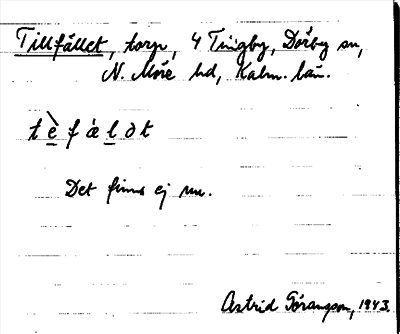 Tillfället, torp, 4 Tingby, Dörby sn,
N. Möre hd, Kalm. län.
tèfælət
Det finns ej nu.
Astrid Göransson, 1943.